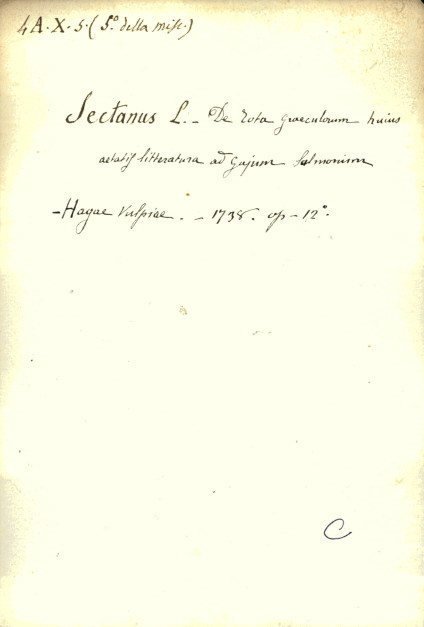 4 A. X. 5. (5.º della misc.)
Sectanus L. - De tota graeculorum huius
aetatis litteratura ad Gajum Salmonium
- Hagae Vulpiae. - 1738. op - 12°.
C